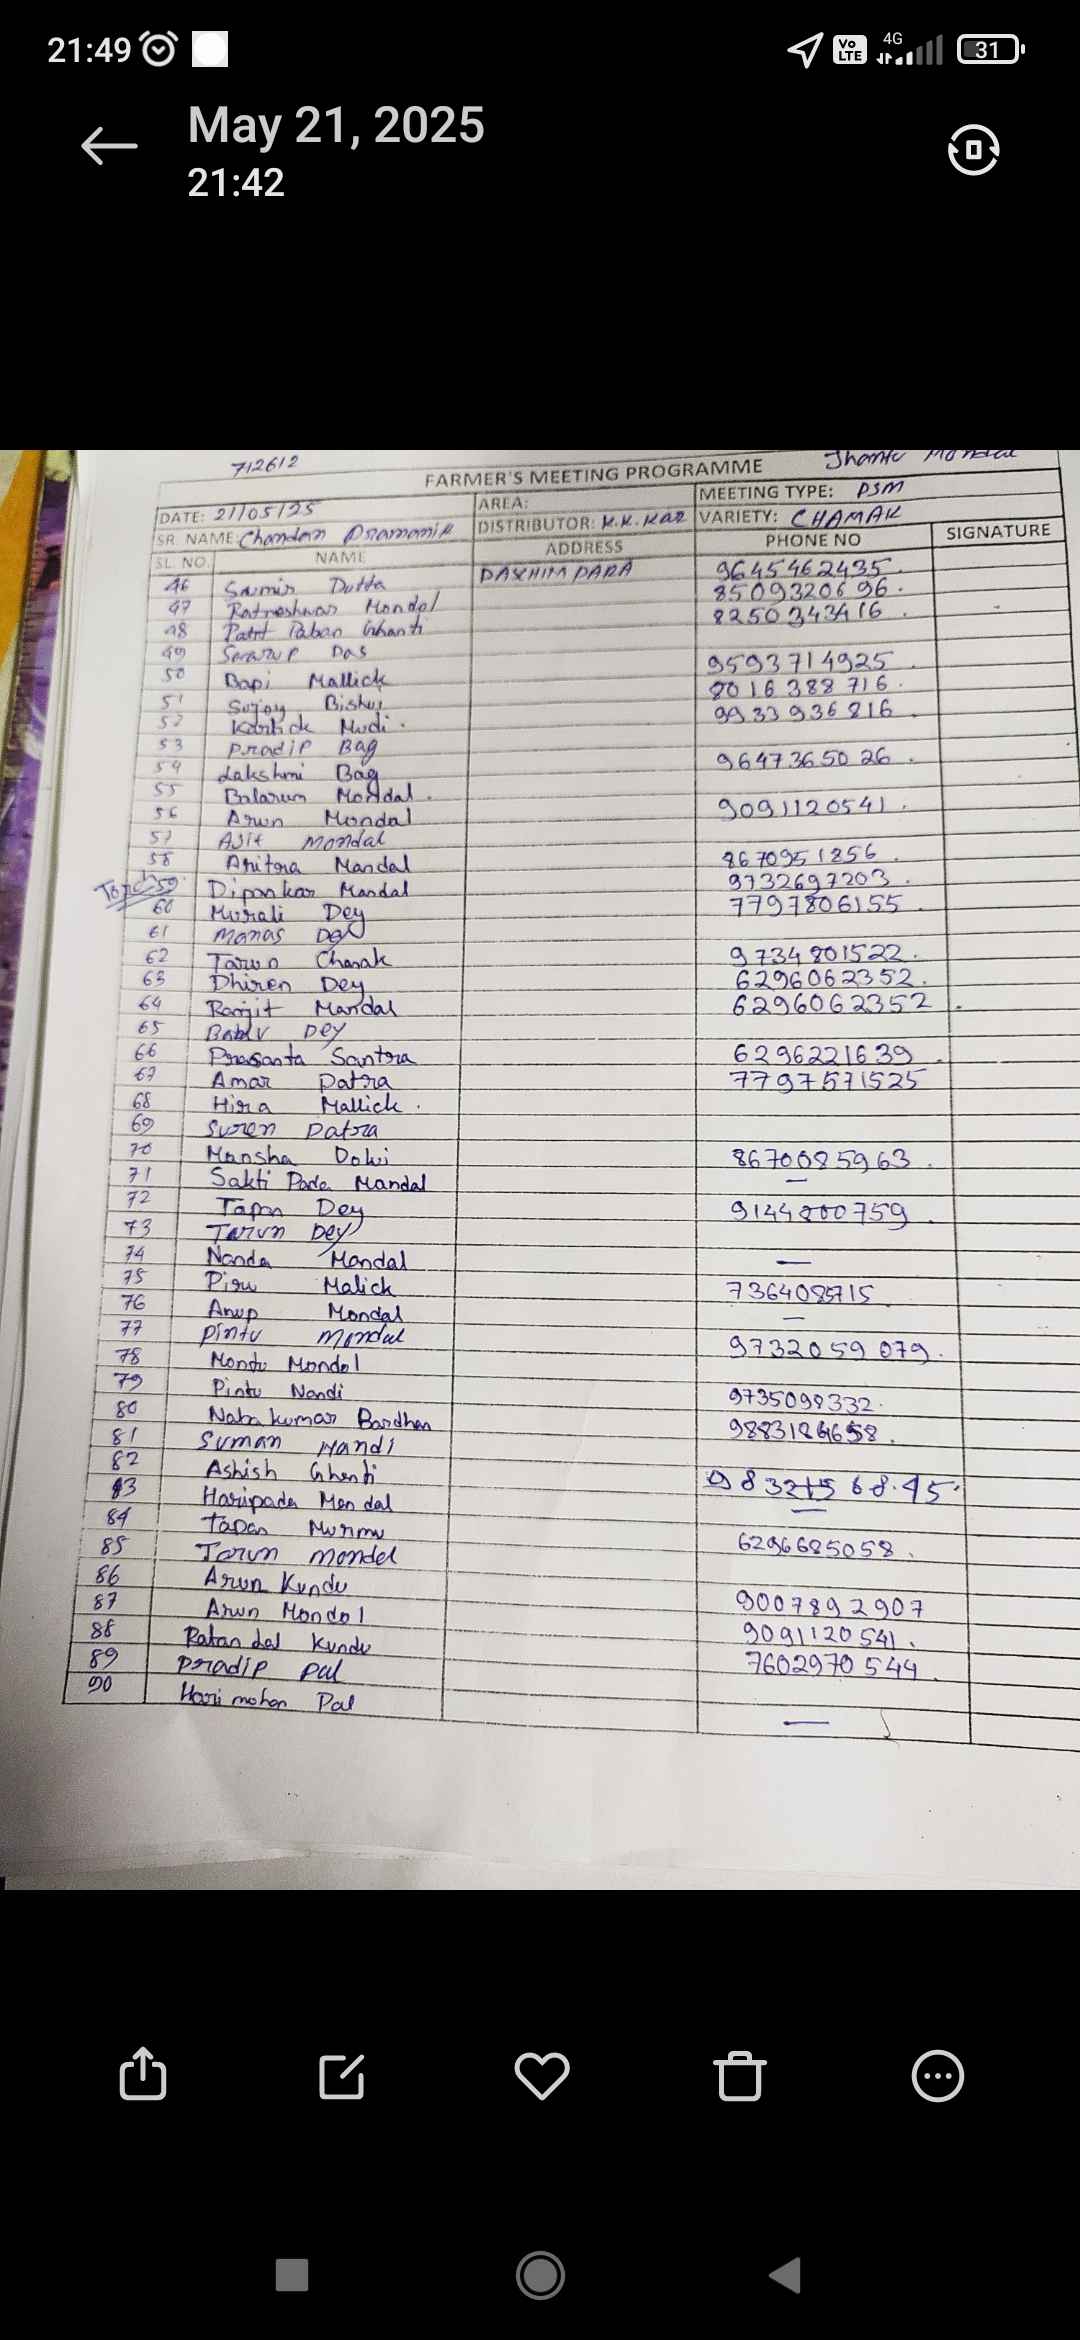 21:49 Vo LTE 4G 31
May 21, 2025
21:42
712612 Jhantu Mondal
FARMER'S MEETING PROGRAMME
DATE: 21/05/25 AREA: MEETING TYPE: PSM
SR. NAME: Chandan Pramanik DISTRIBUTOR: K.K. Kar VARIETY: CHAMAK
SL. NO. NAME ADDRESS PHONE NO SIGNATURE
46 Dutta PASCHIM PARA 9645462435
47 Ratneshwar Mondal 8509320696
48 Patit Paban Ghanti 8250343416
49 Swarup Das
50 Bapi Mallick 9593714925
51 Sujoy Bishui 8016388716
52 Kartick Mudi 9933936816
53 Pradip Bag
54 Lakshmi Bag 9647365026
55 Balaram Mondal
56 Arun Mondal 9091120541
57 Ajit Mondal
58 Mandal 8670951856
59 Dipankar Mandal 9732697203
60 Murali Dey 7797806155
61 Manas Dey
62 Tarun Charak 9734801522
63 Dhiren Dey 6296062352
64 Ranjit Mandal 6296062352
65 Bablu Dey
66 Prasanta Santra 6296221639
67 Amar Patra 7797571525
68 Hira Mallick
69 Suren Patra
70 Mansha Dolui 8670085963
71 Sakti Pada Mandal —
72 Tapan Dey 9144800759
73 Tarun Dey
74 Nanda Mondal —
75 Piru Malick 7364085715
76 Anup Mondal —
77 Pintu Mondal 9732059079
78 Mondu Mondal
79 Pintu Nandi 9735098332
80 Naba Kumar Bardhan
81 Suman Nandi
82 Ashish Ghanti
83 Haripada Mondal —
84 Tapan Murmu
85 Tarun Mondal 6296685058
86 Arun Kundu
87 Arun Mondal 9007892907
88 Ratan Lal Kundu 9091120541
89 Pradip Pal 7602970544
90 Hari mohan Pal —